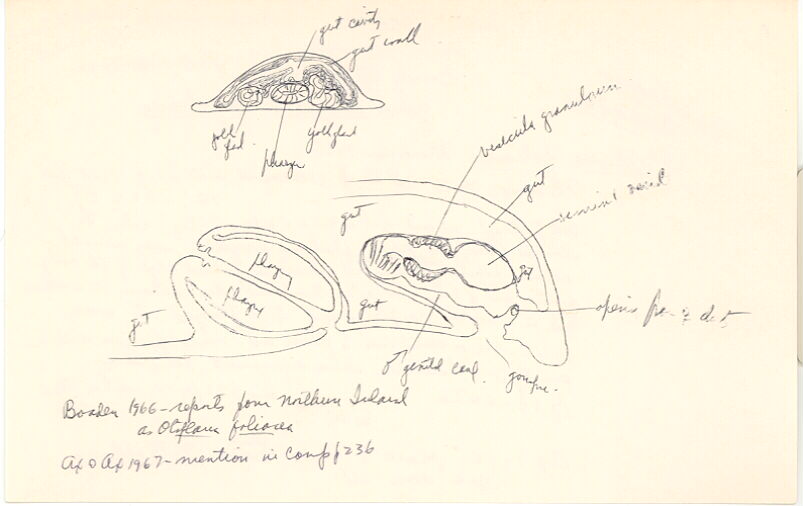 gut cavity
gut wall
yolk
gland
pharynx
yolk gland
vesicula granulorum
gut
gut
pharynx
pharynx
gut
gut
opens from ♀ duct
♂ genital canal.
gonopore.
Boaden 1966 - reports from Northern Ireland
as Otoplana foliacea
Ax & Ax 1967 - mention in Comp p 236